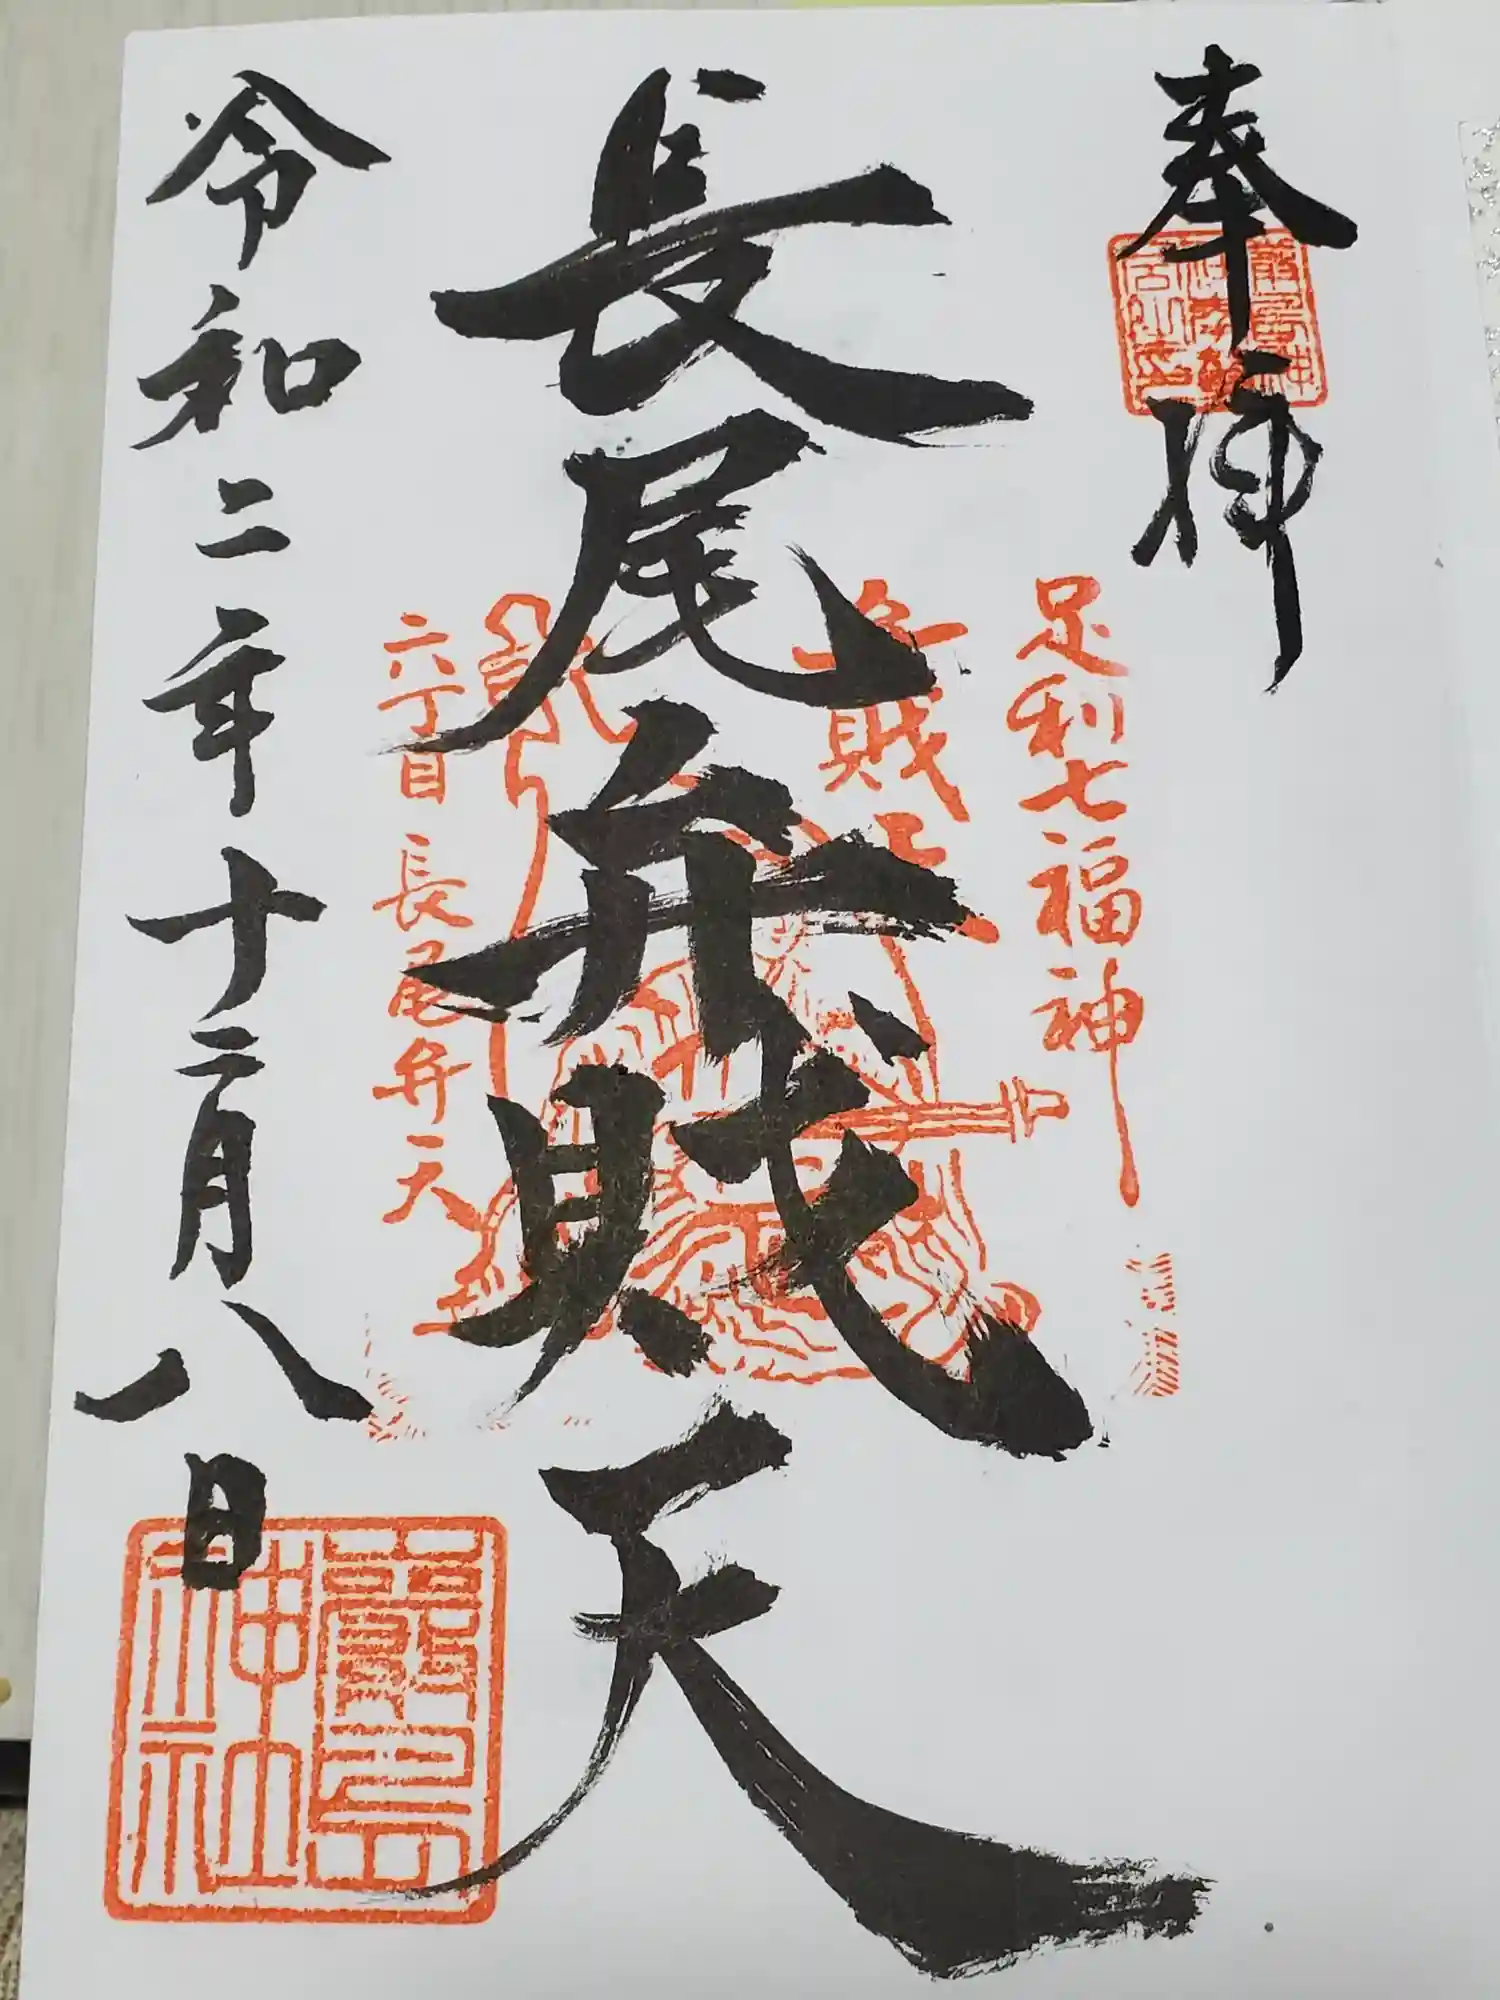 奉拝
足利七福神
長尾弁財天
六丁目長尾弁天
令和二年十二月八日
神社